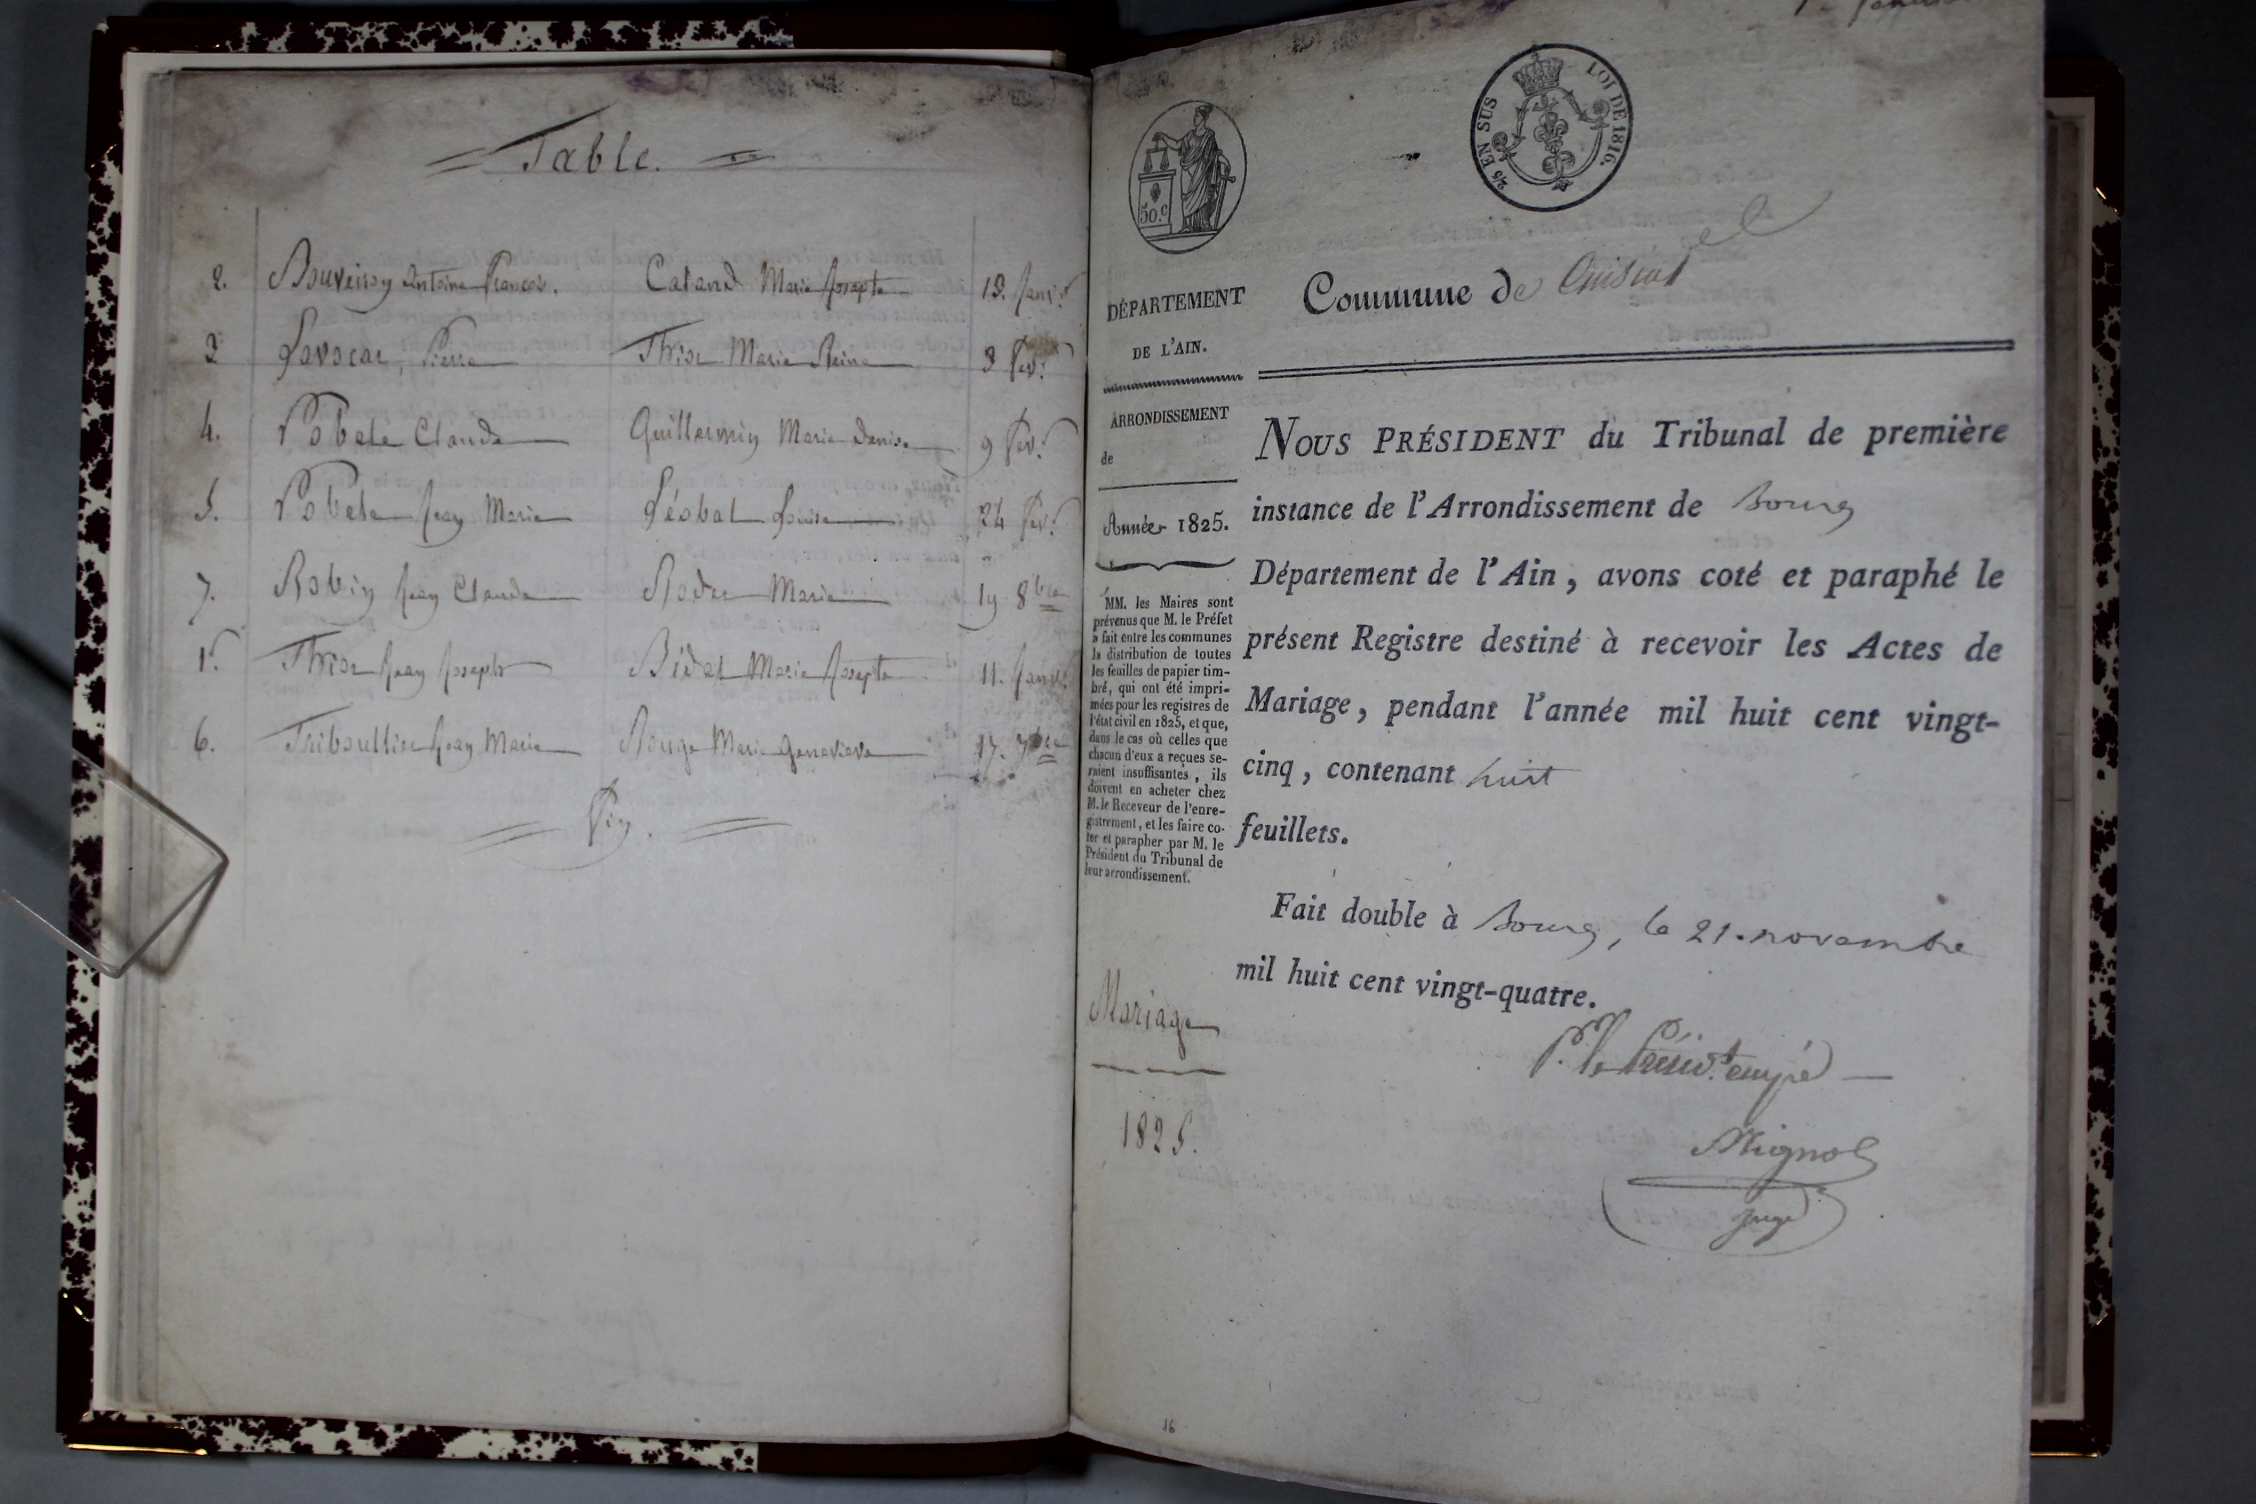 Table.
2. Bouveiroy Antoine François. Catand Marie Josepte 18. Janvr
3 Lavocat, Pierre Thrion Marie Reine 3 Fevr
4. Pobele Claude Guillermin Marie Denise 9 Fevr
5. Pobele Jean Marie Léobat Louise 24 Fevr
7. Robin Jean Claude Rodet Marie 19 8bre
1r. Jean Joseph Bidat Marie Josepte 11. Janvr
6. Thiboullier Jean Marie Rouge Marie Genevieve 17. 7bre
Fin.
50.c
2/5 EN SUS
LOI DE 1816.
DÉPARTEMENT
DE L'AIN.
ARRONDISSEMENT
de
Année 1825.
MM. les Maires sont
prévenus que M. le Préfet
a fait entre les communes
la distribution de toutes
les feuilles de papier tim-
bré, qui ont été impri-
mées pour les registres de
l'état civil en 1825, et que,
dans le cas où celles que
chacun d'eux a reçues se-
raient insuffisantes, ils
doivent en acheter chez
M. le Receveur de l'enre-
gistrement, et les faire co-
ter et parapher par M. le
Président du Tribunal de
leur arrondissement.
Mariage
1825.
Commune de Cuisiat
NOUS PRÉSIDENT du Tribunal de première
instance de l'Arrondissement de Bourg
Département de l'Ain, avons coté et paraphé le
présent Registre destiné à recevoir les Actes de
Mariage, pendant l'année mil huit cent vingt-
cinq, contenant huit
feuillets.
Fait double à Bourg, le 21. novembre
mil huit cent vingt-quatre.
P. le Présidt empé
Mignot
juge
16